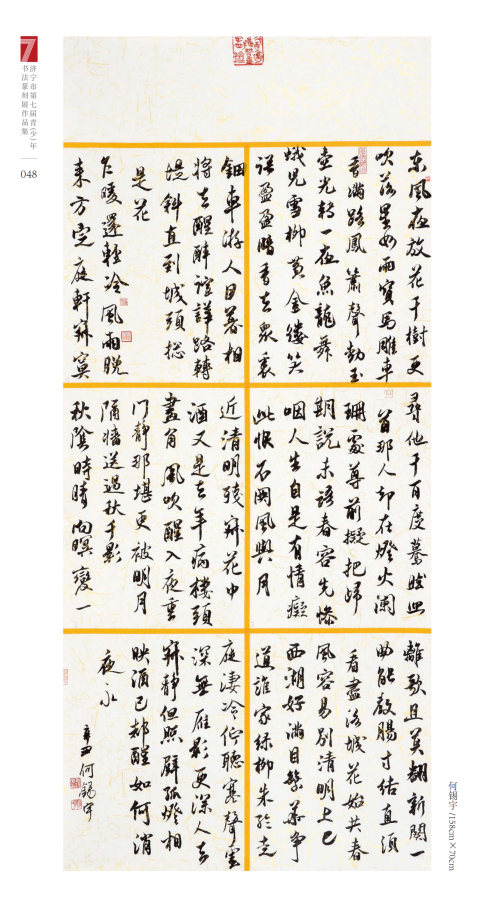 济宁市第七届青(少)年
书法篆刻展作品集
048
東風夜放花千樹更
吹落星如雨寶馬雕車
香滿路鳳簫聲動玉
壺光轉一夜魚龍舞
蛾兒雪柳黃金縷笑
語盈盈暗香去眾裏
尋他千百度驀然回
首那人卻在燈火闌
珊處尊前擬把歸
期說未語春容先慘
咽人生自是有情癡
此恨不關風與月
離歌且莫翻新闋一
曲能教腸寸結直須
看盡洛城花始共春
風容易別清明上巳
西湖好滿目繁華爭
道誰家綠柳朱輪走
鈿車游人日暮相
將去醒醉諠譁路轉
堤斜直到城頭總
是花
乍暖還輕冷風雨晚
來方定庭軒寂寞
近清明殘寂花中
酒又是去年病樓頭
畫角風吹醒入夜重
門靜那堪更被明月
隔墻送過秋千影
秋陰時晴向暝變一
庭淒冷佇聽寒聲雲
深無雁影更深人去
寂靜但照壁孤燈相
映酒已都醒如何消
夜永
辛丑何錫宇
何锡宇/158cm×70cm